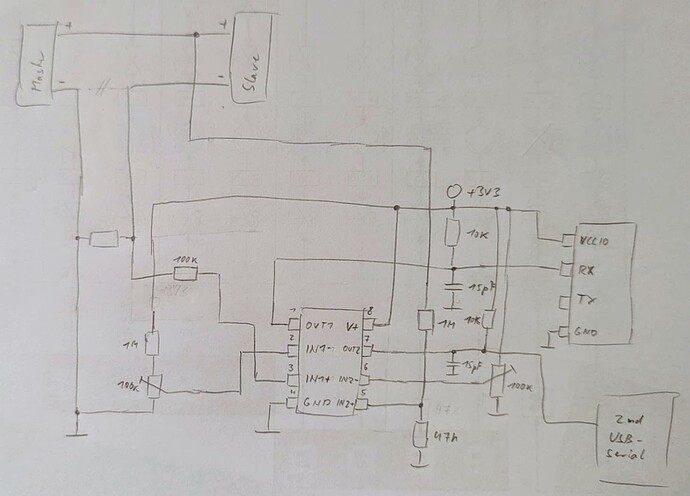 +
+
Mast
Slave
-
-
//
+3V3
10K
VCCIO
RX
100K
15pF
TX
GND
1
OUT1
V+
8
2
IN1-
OUT2
7
1M
10K
3
IN1+
IN2-
6
4
GND
IN2+
5
15pF
1M
100K
100K
47k
2nd
USB-
Serial